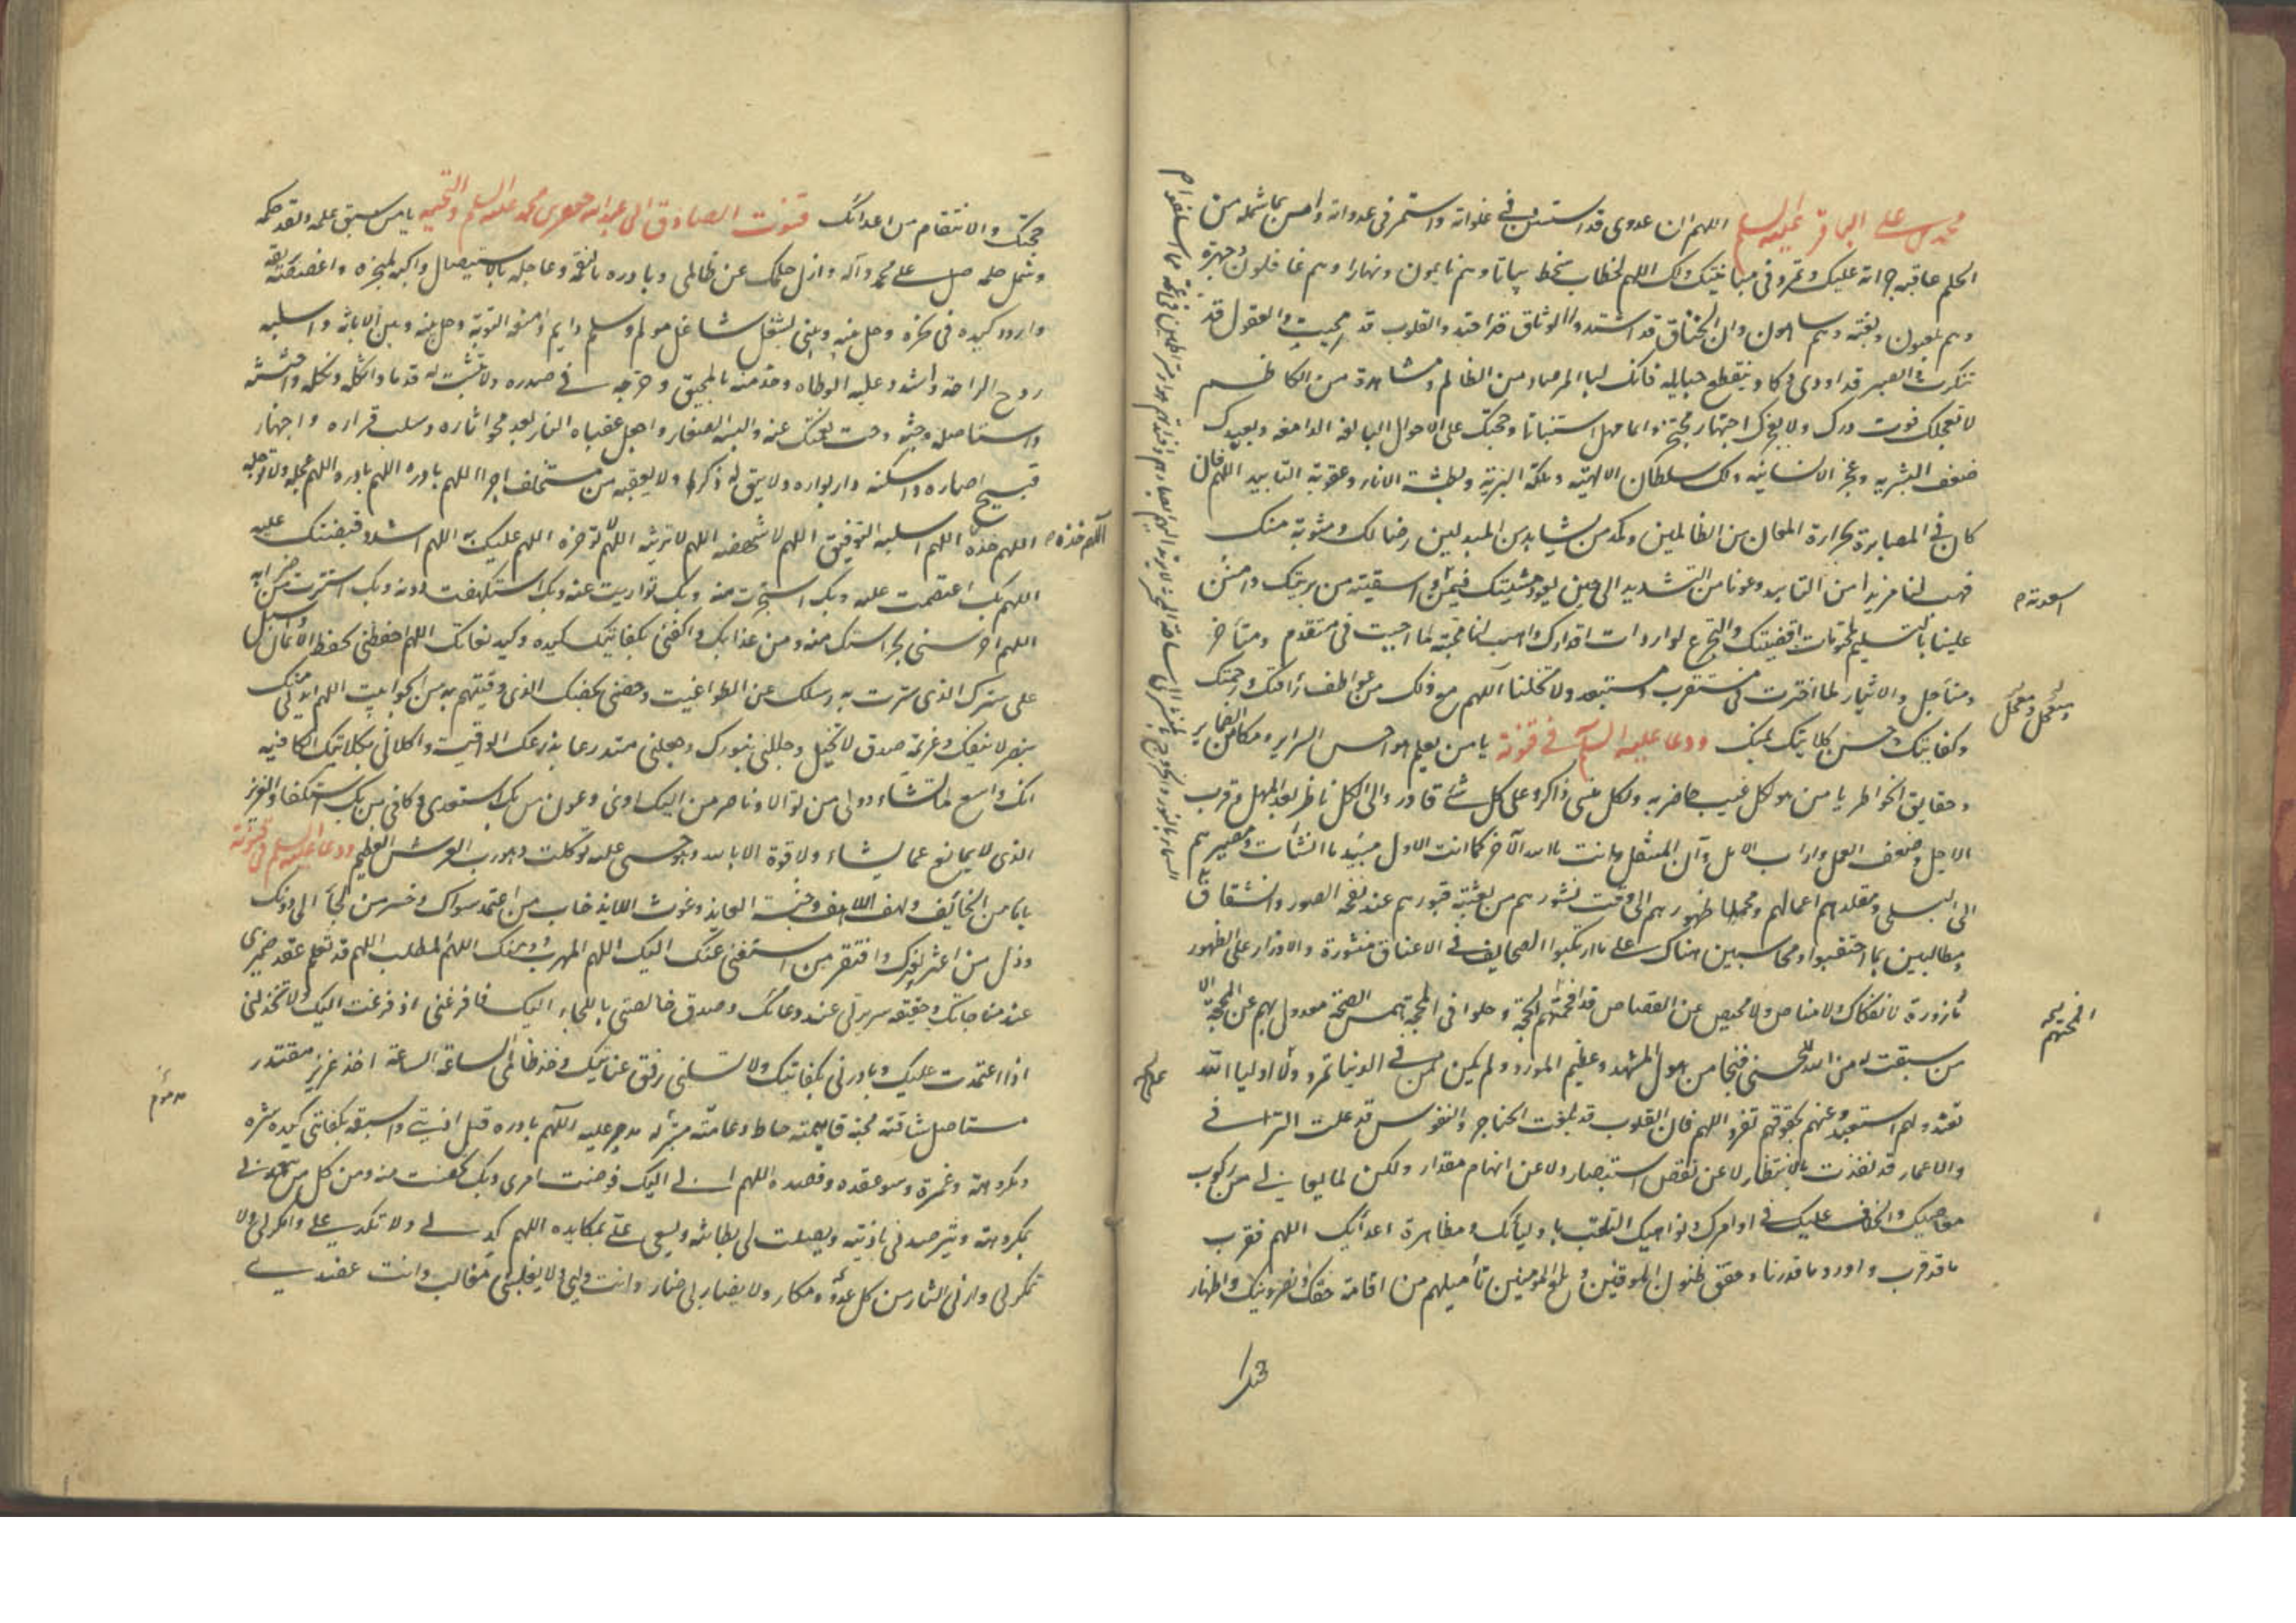 محمد بن علي الباقر عليه السلم اللهم ان عدوي قد استسن في غلوائه واستمر في عدوانه وامن بما شمله من
الحلم عاقبة جرأته عليك وتمرد في مباينتك ولك اللهم لحظات سخط بياتا وهم نايمون ونهارا وهم غافلون وجهرة
وهم يلعبون وبغتة وهم ساهون وان الخناق قد اشتد والوثاق قد احتد والقلوب قد محيت والعقول قد
تنكرت والصبر قد اودى وكاد ينقطع حبايله فانك لبالمرصاد من الظالم ومشاهدة من الكاظم
لا تعجلك فوت درك ولا يعجزك احتجاز محتجز وانما مهل استثباتا وحجتك على الاحوال البالغة الدامغة وبعبيدك
ضعف البشرية وعجز الانسانية ولك سلطان الالهية وملكة البرية وبطشة الاناة وعقوبة التابيد اللهم فان
كان في المصابرة لحرارة المعان من الظالمين وكمد من يشاهد من المبدلين رضا لك ومثوبة منك
فهب لنا مزيدا من التاييد وعونا من التشديد الى حين نفوذ مشيتك فيمن اسقيته من بريتك وامنن
علينا بالتسليم لمحتومات اقضيتك والتجرع لواردات اقدارك وهب لنا محبة لما احببت في متقدم ومتأخر
ومتأجل والايثار لما اخترت في مستقرب ومستبعد ولا تخلنا اللهم مع ذلك من عواطف رأفتك ورحمتك
وكفايتك وحسن كلائتك بمنك ودعا عليه السلم في قنوته يا من يعلم هواجس السراير ومكامن الضماير
وحقايق الخواطر يا من هو لكل غيب حاضر ولكل منسي ذاكر وعلى كل شئ قادر والى الكل ناظر بعد المهل وقرب
الاجل وضعف العمل واراب الامل وآن المنتقل وانت يا الله الآخر كما انت الاول مبيد ما انشأت ومصيرهم
الى البلى ومقلدهم اعمالهم ومحملها ظهورهم الى وقت نشورهم من بعثة قبورهم عند نفخة الصور وانشقاق
ومطالبين بما احتقبوا ومحاسبين هناك على ما ارتكبوا الصحايف في الاعناق منشورة والاوزار على الظهور
مأزورة لا انفكاك ولا مناص ولا محيص عن القصاص قد افحمتهم الحجة وحلوا في حيرة المحجة همس الضجة معدول بهم عن المحجة الا
من سبقت له من الله الحسنى فنجا من هول المشهد وعظيم المورد ولم يكن ممن في الدنيا تمرد ولا على اولياء الله
تعند ولهم استعبد وعنهم بحقوقهم تفرد اللهم فان القلوب قد بلغت الحناجر والنفوس قد علت التراقي
والاعمار قد نفدت بالانتظار لا عن نقص استبصار ولا عن اتهام مقدار ولكن لما تعاني من ركوب
معاصيك والخلاف عليك في اوامرك ونواهيك والتلعب باوليائك ومظاهرة اعدائك اللهم فقرب
ما قد قرب واورد ما قد دنا وحقق ظنون الموقنين وبلغ المؤمنين تأميلهم من اقامة حقك ونصر دينك واظهار
حجتك
حجتك والانتقام من اعدائك قنوت الصادق ابي عبد الله جعفر بن محمد عليه السلم والتحية يا من سبق علمه ونفذ حكمه
وشمل حلمه صل على محمد وآله وازل حلمك عن ظالمي وبادره بالنقمة وعاجله بالاستيصال وكبه لمنخره واغصصه بريقه
واردد كيده في نحره وحل بينه وبيني بشغل شاغل مولم وسقم دايم وامنعه التوبة وحل بينه وبين الانابة واسلبه
روح الراحة واشدد عليه الوطاة وخذ منه بالمخنق وحشرجه في صدره ولا تثبت له قدما واثكله ونكله واجتثه
واستاصله وجثه وحت نعمتك عنه والبسه الصغار واجعل عقباه النار بعد محو آثاره وسلب قراره واجهار
قبيح آصاره واسكنه دار بواره ولا تبق له ذكرا ولا تعقبه من مستخلف اجرا اللهم بادره اللهم بادره اللهم عجله ولا تؤجله
اللهم خذه اللهم اسلبه التوفيق اللهم لا تنهضه اللهم لا ترثه اللهم لا تؤخره اللهم عليك به اللهم اشدد قبضتك عليه
اللهم بك اعتصمت عليه وبك استجرت منه وبك تواريت عنه وبك استكهفت دونه وبك استترت من ضرائه
اللهم احرسني بحراستك منه ومن عذابك واكفني بكفايتك كيده وكيد بغاتك اللهم احفظني بحفظ الايمان واسبل
علي سترك الذي سترت به رسلك عن الطواغيت وحصني بحصنك الذي وقيتهم به من الجوابيت اللهم ايدني منك
بنصر لا ينفك وعزيمة صدق لا تحيل وجللني بنورك واجعلني متدرعا بدرعك الواقية واكلأني بكلائتك الكافية
انك واسع لما تشاء وولي من لك توالى وناصر من اليك اوى وعون من بك استعدى وكافي من بك استكفى والعزيز
الذي لا يمانع عما يشاء ولا قوة الا بالله وهو حسبي عليه توكلت وهو رب العرش العظيم ودعا عليه السلم في قنوته
يا مأمن الخائف وكهف اللاهف وجنة العايذ وغوث اللايذ خاب من اعتمد سواك وخسر من لجأ الى دونك
وذل من اعتز بغيرك وافتقر من استغنى عنك اليك اللهم المهرب ومنك اللهم المطلب اللهم قد تعلم عقد ضميري
عند مناجاتك وحقيقة سريرتي عند دعائك وصدق خالصتي باللجاء اليك فافزعني اذا فزعت اليك ولا تخذلني
اذا اعتمدت عليك وبادرني بكفايتك ولا تسلبني رفق عنايتك وخذ ظالمي الساعة الساعة اخذ عزيز مقتدر
مستاصل شافته مجتث قايمته حاط دعامته مبير له مدمر عليه اللهم بادره قبل اذيتي واسبقه بكفايتي كيده وشره
ومكروهه وغمزه وسوء عقده وقصده اللهم اني اليك فوضت امري وبك تحصنت منه ومن كل من يتعمدني
بمكروهه ويترصدني باذيته ويصلت لي بطانته ويسعى علي بمكايده اللهم كد لي ولا تكد علي وامكر لي ولا
تمكر بي وارني الثار من كل عدو ومكار ولا يضارني ضار وانت وليي ولا يغلبني مغالب وانت عضدي